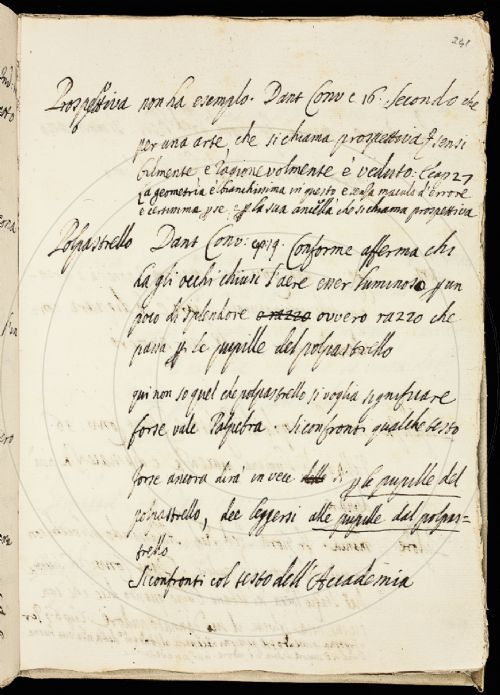 241
Prospettiva non ha esempio. Dant Conv c 16. Secondo che
per una arte, che si chiama prospettiva sensi
bilmente, e ragionevolmente è veduto: E cap 27
La geometria è bianchissima in quanto è senza macula d'errore
e certissima p se, e p la sua ancilla che si chiama prospettiva
Polpastrello Dant Conv: cap 19. Conforme afferma chi
ha gli occhi chiusi l'aere esser luminoso p un
poco di splendore o razzo ovvero razzo che
passa p le pupille del polpastrello
qui non so quel che polpastrello si voglia significare
forse vale Palpebra. Si confronti qualche testo
forse ancora dirà in vece dello di p le pupille del
polpastrello, dee leggersi alle pupille dal polpas=
trello
Si confronti col testo dell'Accademia